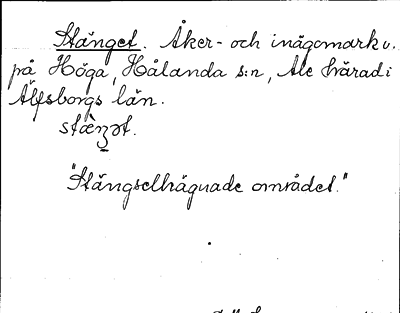 Stänget. Åker- och inägomark v.
på Höga, Hålanda s:n, Ale härad i
Älfsborgs län.
stæ̀ŋət.
"Stängselhägnade området."